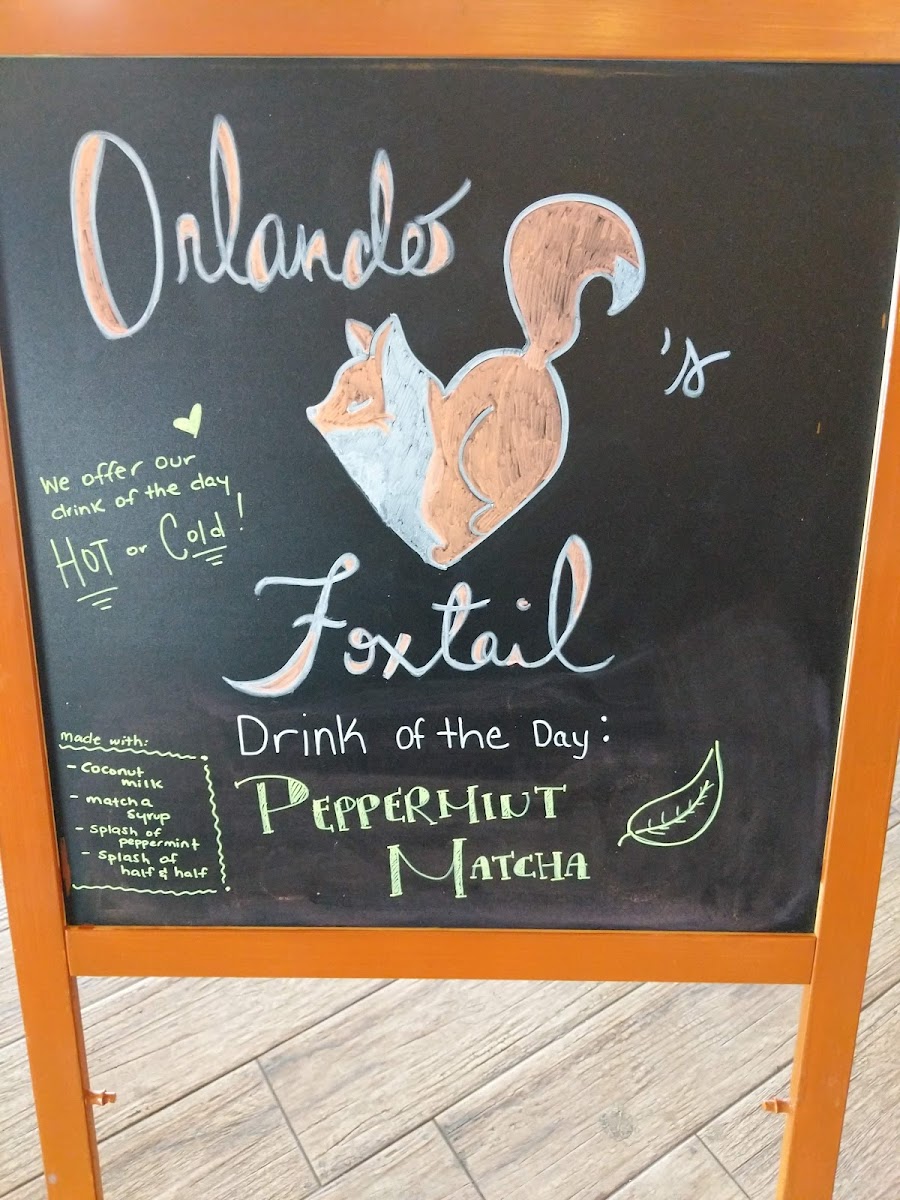 Orlando
's
We offer our
drink of the day
HOT or Cold!
Foxtail
Drink of the Day:
PEPPERMINT
MATCHA
made with:
- Coconut
milk
- matcha
syrup
- splash of
peppermint
- splash of
half & half